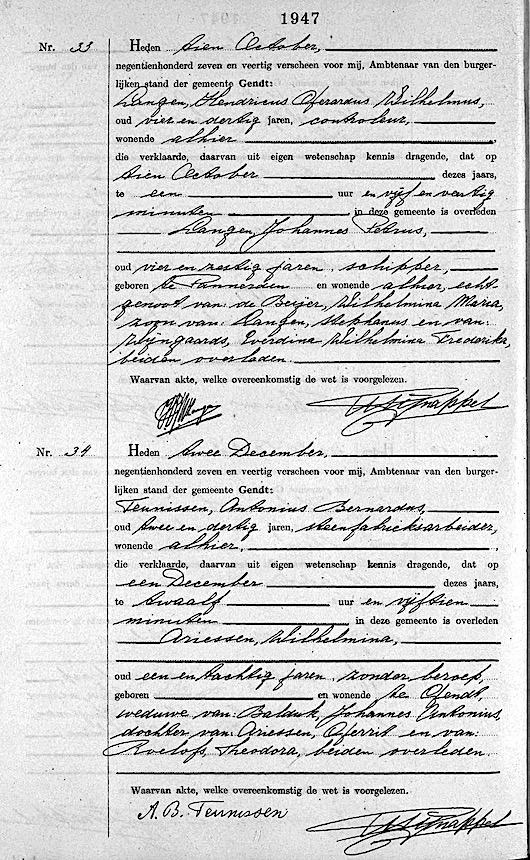 1947
Nr. 33 Heden tien October,
negentienhonderd zeven en veertig verscheen voor mij, Ambtenaar van den burger-
lijken stand der gemeente Gendt:
Langen, Hendricus Gerardus Wilhelmus,
oud vier en dertig jaren, controleur,
wonende alhier
die verklaarde, daarvan uit eigen wetenschap kennis dragende, dat op
tien October dezes jaars,
te een uur en vijf en veertig
minuten in deze gemeente is overleden
Langen, Johannes Petrus,
oud vier en zestig jaren, schipper,
geboren te Pannerden en wonende alhier, echt-
genoot van: de Beijer, Wilhelmina Maria,
zoon van: Langen, Stephanus en van:
Wijngaards, Everdina Wilhelmina Frederika,
beiden overleden.
Waarvan akte, welke overeenkomstig de wet is voorgelezen.
Nr. 34 Heden twee December,
negentienhonderd zeven en veertig verscheen voor mij, Ambtenaar van den burger-
lijken stand der gemeente Gendt:
Teunissen, Antonius Bernardus,
oud twee en dertig jaren, steenfabrieksarbeider,
wonende alhier,
die verklaarde, daarvan uit eigen wetenschap kennis dragende, dat op
een December dezes jaars,
te twaalf uur en vijftien
minuten in deze gemeente is overleden
Ariessen, Wilhelmina,
oud een en tachtig jaren, zonder beroep,
geboren en wonende te Gendt,
weduwe van: Balduk, Johannes Antonius,
dochter van: Ariessen, Gerrit en van:
Roelofs, Theodora, beiden overleden.
Waarvan akte, welke overeenkomstig de wet is voorgelezen.
A. B. Teunissen